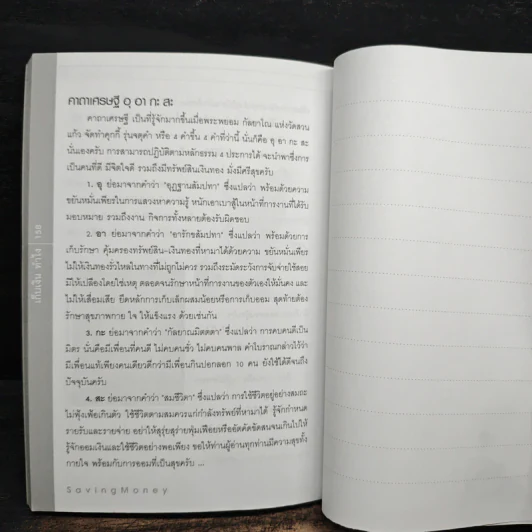 คาถาเศรษฐี อุ อา กะ สะ
คาถาเศรษฐี เป็นที่รู้จักมากขึ้นเมื่อพระพยอม กัลยาโณ แห่งวัดสวน
แก้ว จัดทำคุกกี้ รุ่นจตุคำ หรือ 4 คำขึ้น 4 คำที่ว่านี้ นั่นก็คือ อุ อา กะ สะ
นั่นเองครับ การสามารถปฏิบัติตามหลักธรรม 4 ประการได้ จะนำพาซึ่งการ
เป็นคนที่ดี มีจิตใจดี รวมถึงมีทรัพย์สินเงินทอง มั่งมีศรีสุขครับ
1. อุ ย่อมาจากคำว่า "อุฏฐานสัมปทา" ซึ่งแปลว่า พร้อมด้วยความ
ขยันหมั่นเพียรในการแสวงหาความรู้ หนักเอาเบาสู้ในหน้าที่การงานที่ได้รับ
มอบหมาย รวมถึงงาน กิจการทั้งหลายต้องรับผิดชอบ
2. อา ย่อมาจากคำว่า "อารักขสัมปทา" ซึ่งแปลว่า พร้อมด้วยการ
เก็บรักษา คุ้มครองทรัพย์สิน-เงินทองที่หามาได้ด้วยความ ขยันหมั่นเพียร
ไม่ให้เงินทองรั่วไหลในทางที่ไม่ถูกไม่ควร รวมถึงระมัดระวังการจับจ่ายใช้สอย
มิให้เปลืองโดยใช่เหตุ ตลอดจนรักษาหน้าที่การงานของตัวเองให้มั่นคง และ
ไม่ให้เสื่อมเสีย ยึดหลักการเก็บเล็กผสมน้อยหรือการเก็บออม สุดท้ายต้อง
รักษาสุขภาพกาย ใจ ให้แข็งแรง ด้วยเช่นกัน
3. กะ ย่อมาจากคำว่า "กัลยาณมิตตตา" ซึ่งแปลว่า การคบคนดีเป็น
มิตร นั่นคือมีเพื่อนที่คนดี ไม่คบคนชั่ว ไม่คบคนพาล คำโบราณกล่าวไว้ว่า
มีเพื่อนแท้เพียงคนเดียวดีกว่ามีเพื่อนกินปอกลอก 10 คน ยังใช้ได้ดีจนถึง
ปัจจุบันครับ
4. สะ ย่อมาจากคำว่า "สมชีวิตา" ซึ่งแปลว่า การใช้ชีวิตอยู่อย่างสมถะ
ไม่ฟุ้งเฟ้อเกินตัว ใช้ชีวิตตามสมควรแก่กำลังทรัพย์ที่หามาได้ รู้จักกำหนด
รายรับและรายจ่าย อย่าให้สุรุ่ยสุร่ายฟุ่มเฟือยหรืออัตคัดขัดสนจนเกินไปให้
รู้จักออมเงินและใช้ชีวิตอย่างพอเพียง ขอให้ท่านผู้อ่านทุกท่านมีความสุขทั้ง
กายใจ พร้อมกับการออมที่เป็นสุขครับ ...
เก็บเงิน ทำไง | 150
SavingMoney